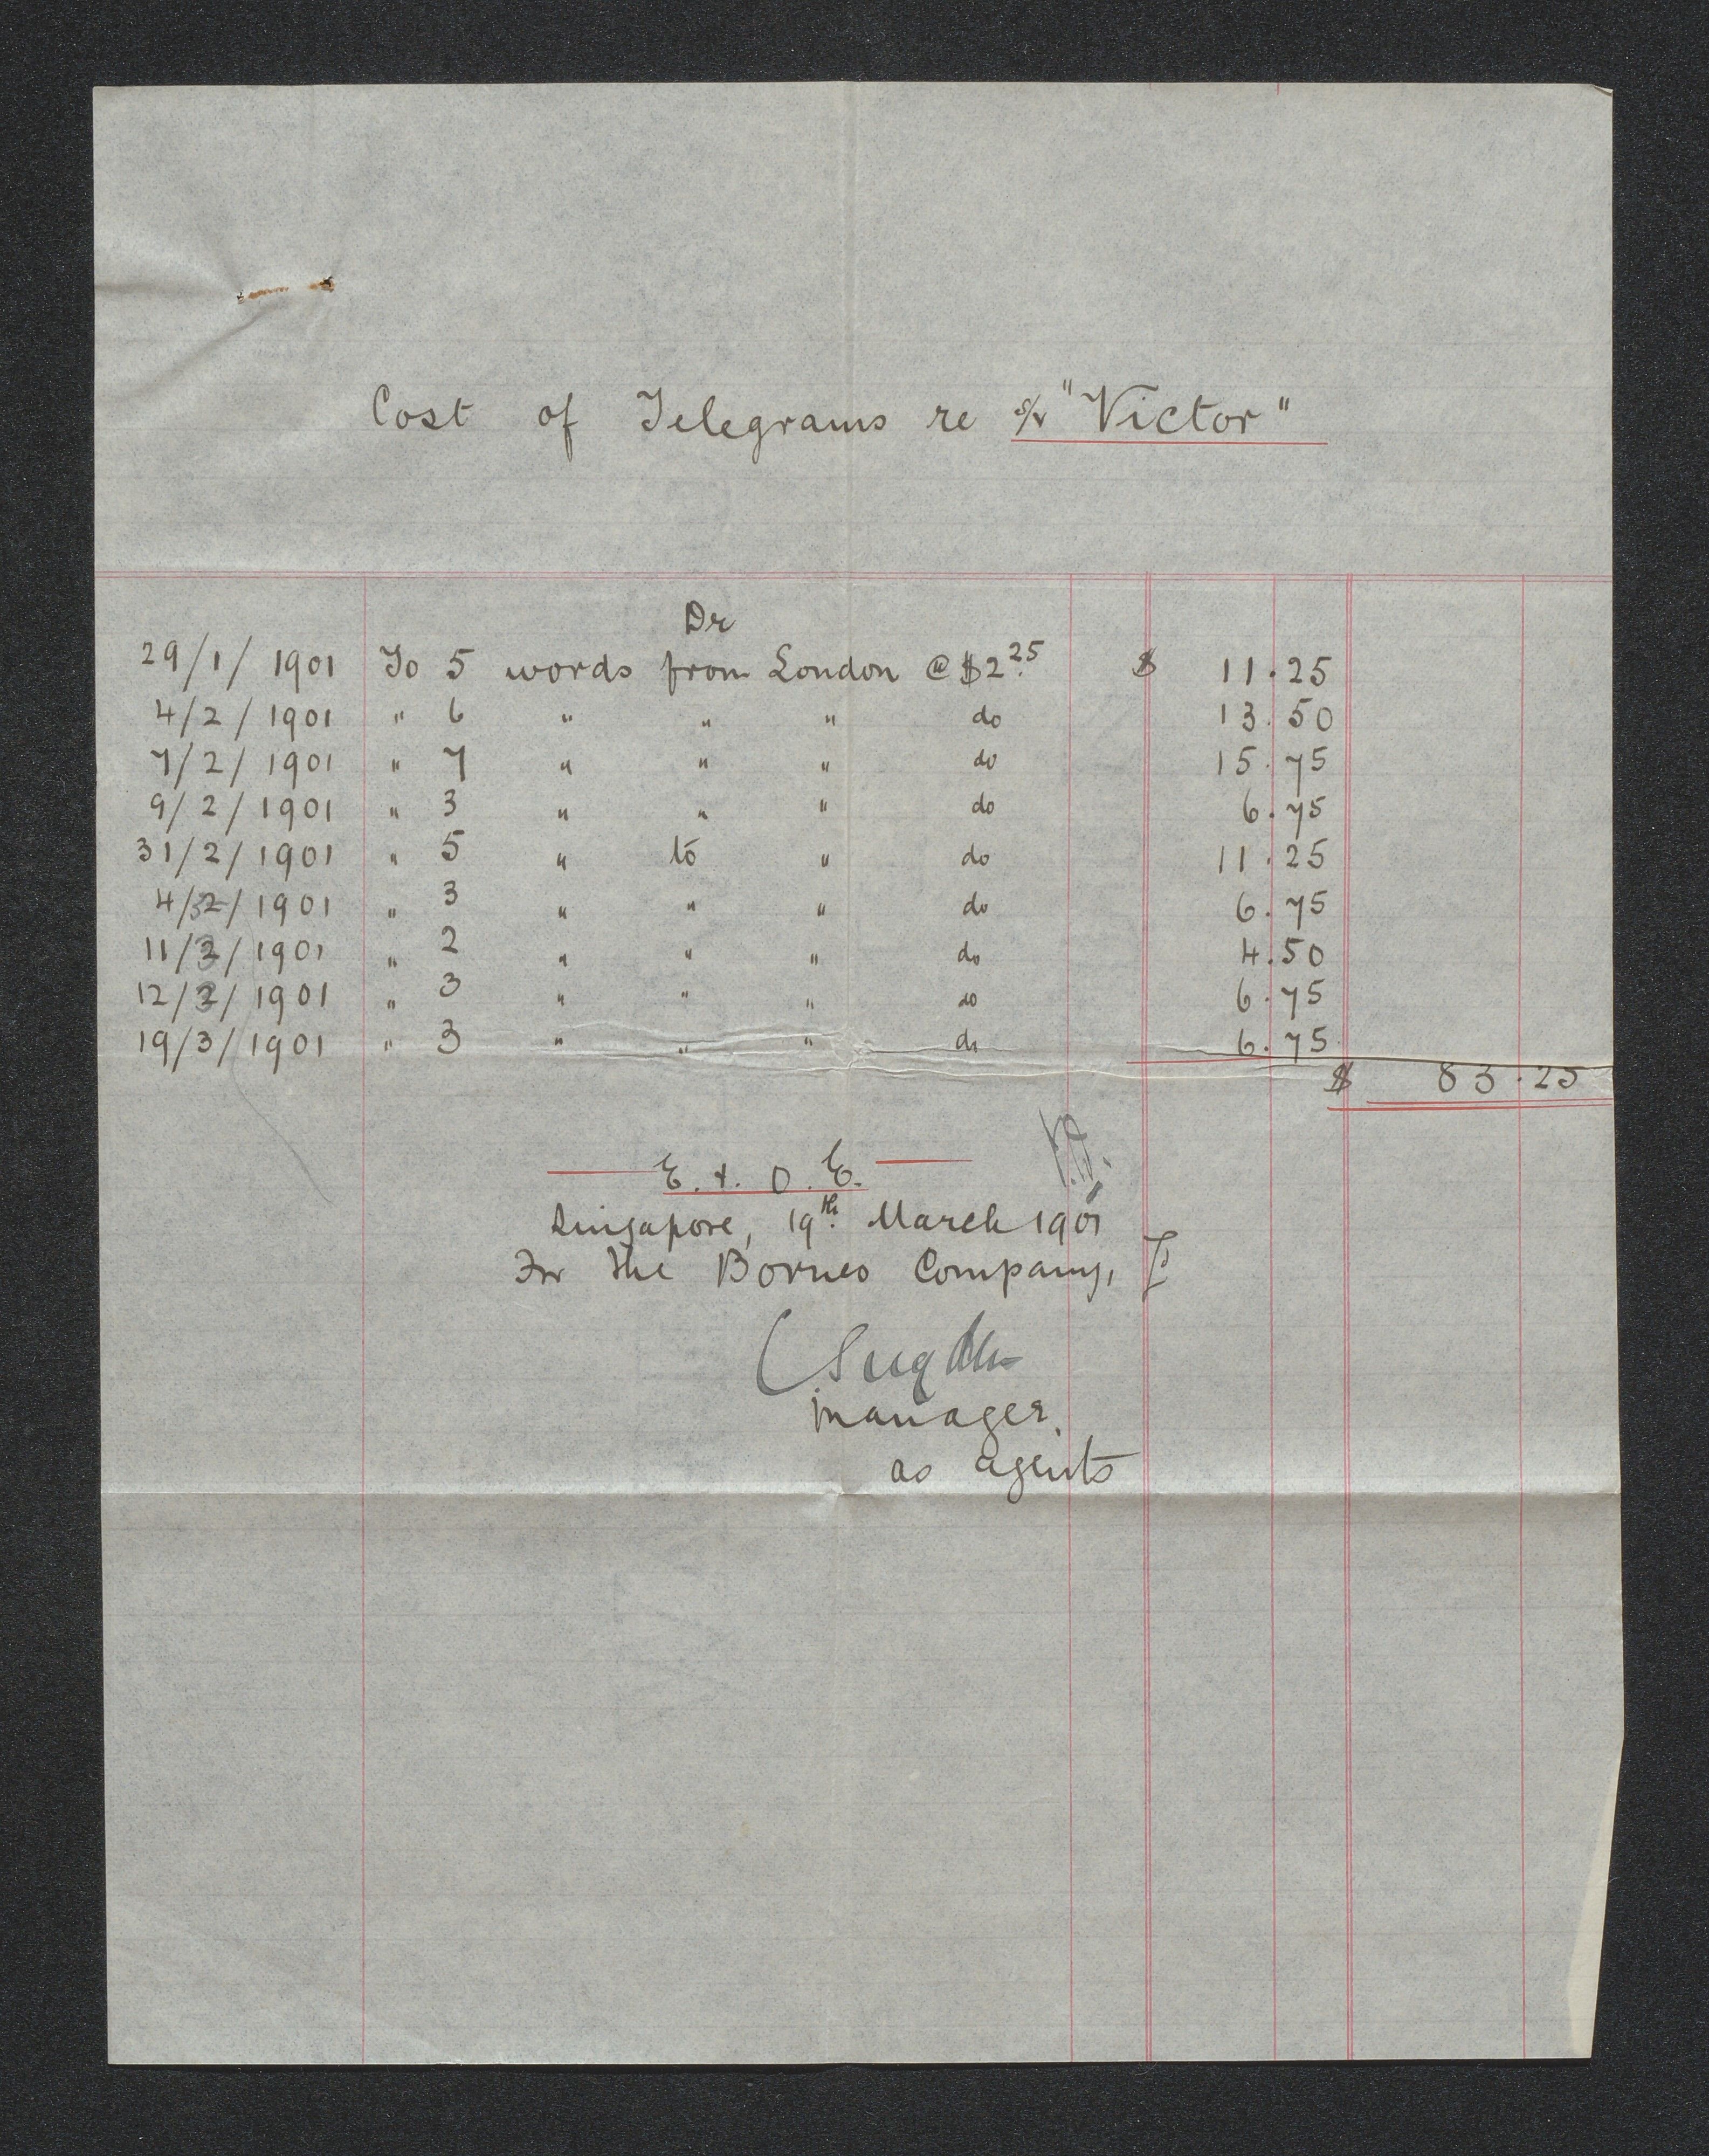 Cost of Telegrams re S/V "Victor"
Dr
29/1/1901 To 5 words from London @ $2.25 $ 11.25
4/2/1901 " 6 " " " do 13.50
7/2/1901 " 7 " " " do 15.75
9/2/1901 " 3 " " " do 6.75
31/2/1901 " 5 " to " do 11.25
4/3/1901 " 3 " " " do 6.75
11/3/1901 " 2 " " " do 4.50
12/3/1901 " 3 " " " do 6.75
19/3/1901 " 3 " " " do 6.75
$ 83.25
E. & O. E.
Singapore, 19th March 1901
For the Borneo Company,
manager.
as agents